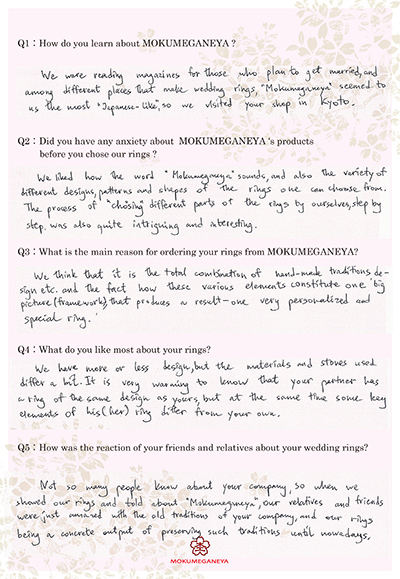 Q1 : How do you learn about MOKUMEGANEYA ?
We were reading magazines for those who plan to get married, and
among different places that make wedding rings, "Mokumeganeya" seemed to
us the most "Japanese-like", so we visited your shop in Kyoto.
Q2 : Did you have any anxiety about MOKUMEGANEYA 's products
before you chose our rings ?
We liked how the word "Mokumeganeya" sounds, and also the variety of
different designs, patterns and shapes of the rings one can choose from.
The process of "chosing" different parts of the rings by ourselves, step by
step was also quite intriguing and interesting.
Q3 : What is the main reason for ordering your rings from MOKUMEGANEYA?
We think that it is the total combination of hand-made traditions, de-
sign etc. and the fact how these various elements constitute one 'big
picture (framework), that produces a result - one very personalized and
special ring.'
Q4 : What do you like most about your rings?
We have more or less design, but the materials and stones used
differ a bit. It is very warming to know that your partner has
a ring of the same design as yours, but at the same time some key
elements of his (her) ring differ from your own.
Q5 : How was the reaction of your friends and relatives about your wedding rings?
Not so many people know about your company, so when we
showed our rings and told about "Mokumeganeya", our relatives and friends
were just amazed with the old traditions of your company, and our rings
being a concrete output of preserving such traditions until nowadays.
MOKUMEGANEYA